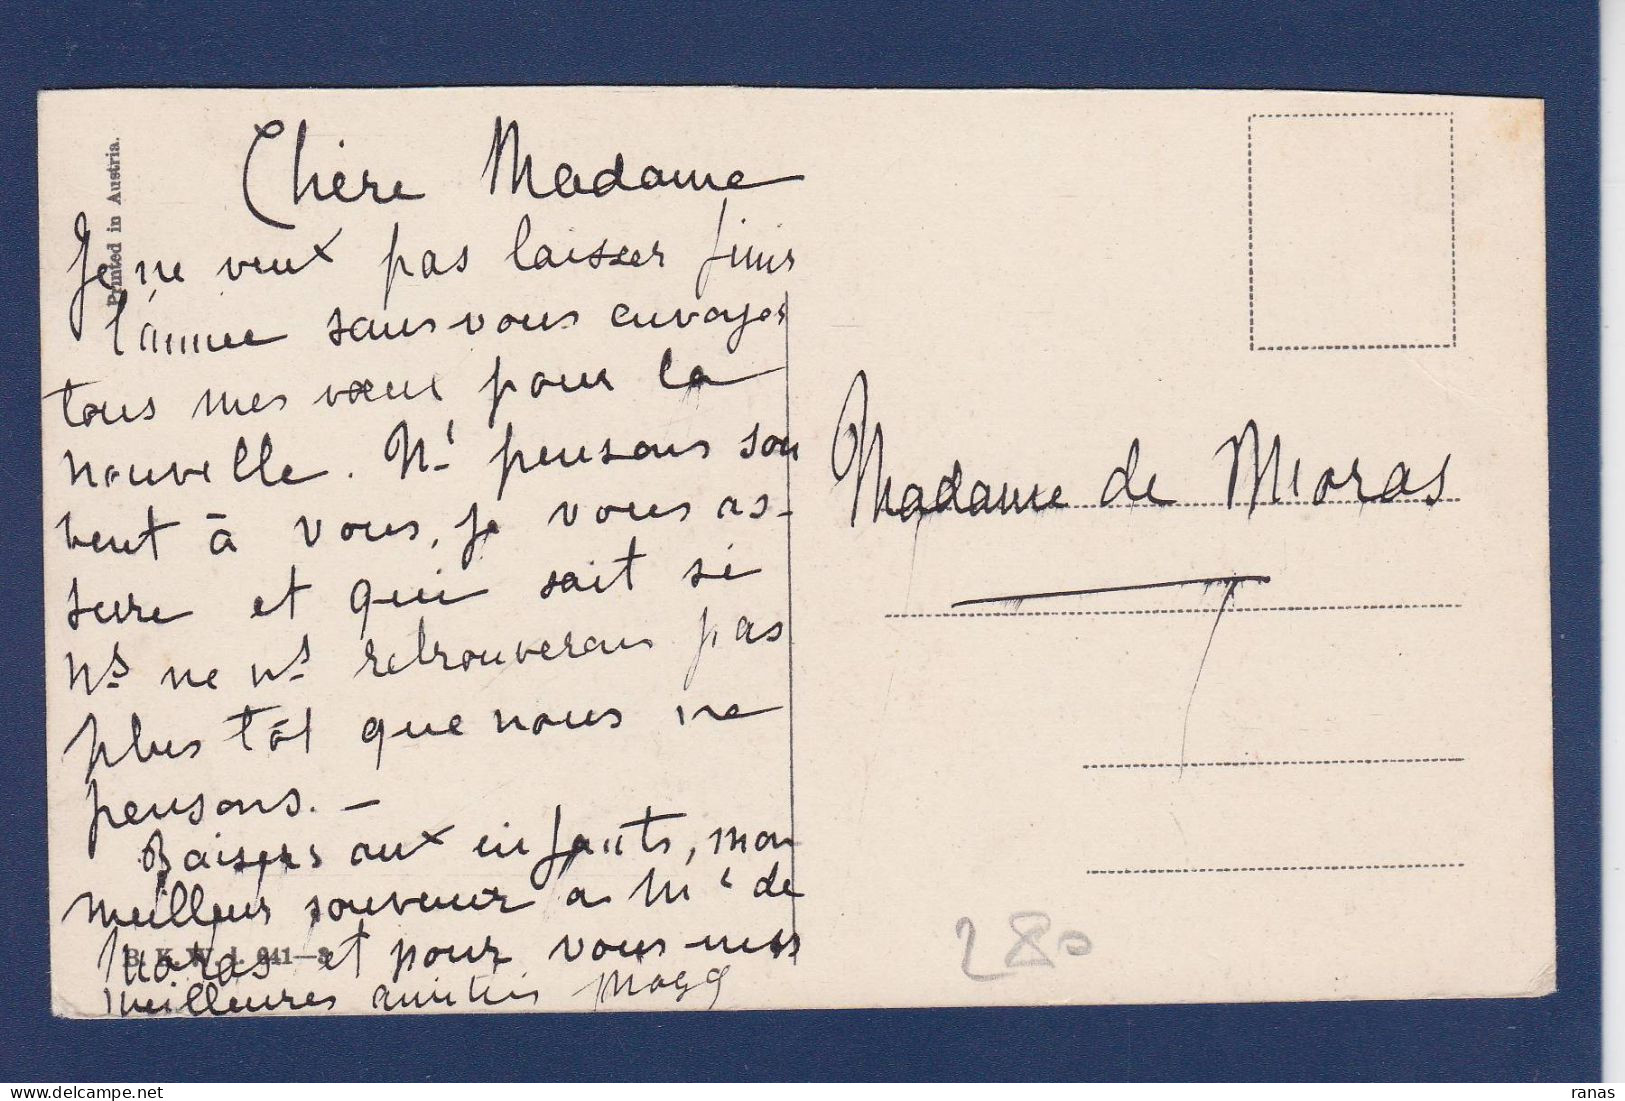 Printed in Austria.
Chère Madame
Je ne veux pas laisser finir
l'année sans vous envoyer
tous mes vœux pour la
nouvelle. Ns pensons sou
vent à vous, je vous as-
sure et qui sait si
Ns ne ns retrouverons pas
plus tôt que nous ne
pensons. —
Baisers aux enfants, mon
meilleur souvenir à Mr de
Moras et pour vous mes
meilleures amitiés
B. K. W. I. 941-3
Madame de Moras
280
ranas